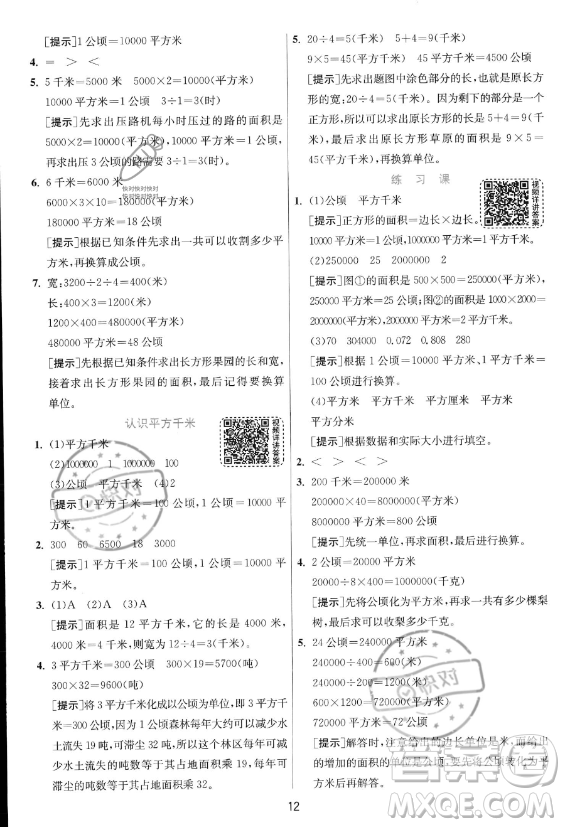 [提示]1公顷=10000平方米
4. = > <
5. 5千米=5000米 5000×2=10000(平方米)
10000平方米=1公顷 3÷1=3(时)
[提示]先求出压路机每小时压过的路的面积是
5000×2=10000(平方米),10000平方米=1公顷,
再求出压3公顷的路需要3÷1=3(时)。
6. 6千米=6000米
6000×3×10=180000(平方米)
180000平方米=18公顷
[提示]根据已知条件先求出一共可以收割多少平
方米,再换算成公顷。
7. 宽:3200÷2÷4=400(米)
长:400×3=1200(米)
1200×400=480000(平方米)
480000平方米=48公顷
[提示]先根据已知条件求出长方形果园的长和宽,
接着求出长方形果园的面积,最后记得要换算
单位。
认识平方千米
1. (1)平方千米
(2)1000000 1 1000000 100
(3)公顷 平方千米 (4)2
[提示]1平方千米=100公顷,1公顷=10000平
方米。
2. 300 60 6500 18 3000
[提示]1平方千米=100公顷=1000000平方
米。
3. (1)A (2)A (3)A
[提示]面积是12平方千米,它的长是4000米,
4000米=4千米,则宽为12÷4=3(千米)。
4. 3平方千米=300公顷 300×19=5700(吨)
300×32=9600(吨)
[提示]将3平方千米化成以公顷为单位,即3平方千
米=300公顷,因为1公顷森林每年大约可以减少水
土流失19吨,可滞尘32吨,所以这个林区每年大约可
以减少水土流失的吨数等于其占地面积乘19,每年可
滞尘的吨数等于其占地面积乘32。
5. 20÷4=5(千米) 5+4=9(千米)
9×5=45(平方千米) 45平方千米=4500公顷
[提示]先求出题图中涂色部分的长,也就是长方
形的宽:20÷4=5(千米)。因为剩下的部分是一个
正方形,所以可以求出原长方形的长是5+4=9(千
米)。最后求出原长方形草原的面积是9×5=
45(平方千米),再换算单位。
练习课
1. (1)公顷 平方千米
[提示]正方形的面积=边长×边长。
(2)250000 25 2000000 2
[提示]图①的面积是500×500=250000(平方米),
250000平方米=25公顷;图②的面积是1000×2000=
2000000(平方米),2000000平方米=2平方千米。
(3)70 304000 0.072 0.808 280
[提示]根据1公顷=10000平方米、1平方千米=
100公顷进行换算。
(4)平方米 平方千米 平方厘米 平方米
平方分米
[提示]根据数据和实际大小进行填空。
2. = > < >
3. 200千米=200000米
200000×40=8000000(平方米)
8000000平方米=800公顷
[提示]先统一单位,再求面积,最后进行换算。
4. 2公顷=20000平方米
20000÷8×400=1000000(千克)
[提示]先将公顷化为平方米,再求一共有多少棵梨
树,最后求一共可以收梨多少千克。
5. 24公顷=240000平方米
240000÷400=600(米)
600×1200=720000(平方米)
720000平方米=72公顷
[提示]解答时,注意给出的边长单位是米,而给出
的增加的面积的单位是公顷,要先将公顷转化为平
方米后再解答。
视频详讲答案
视频详讲答案
快对
快对
快对快对快对
快对快对快对
答案圈
MXQE.COM
12